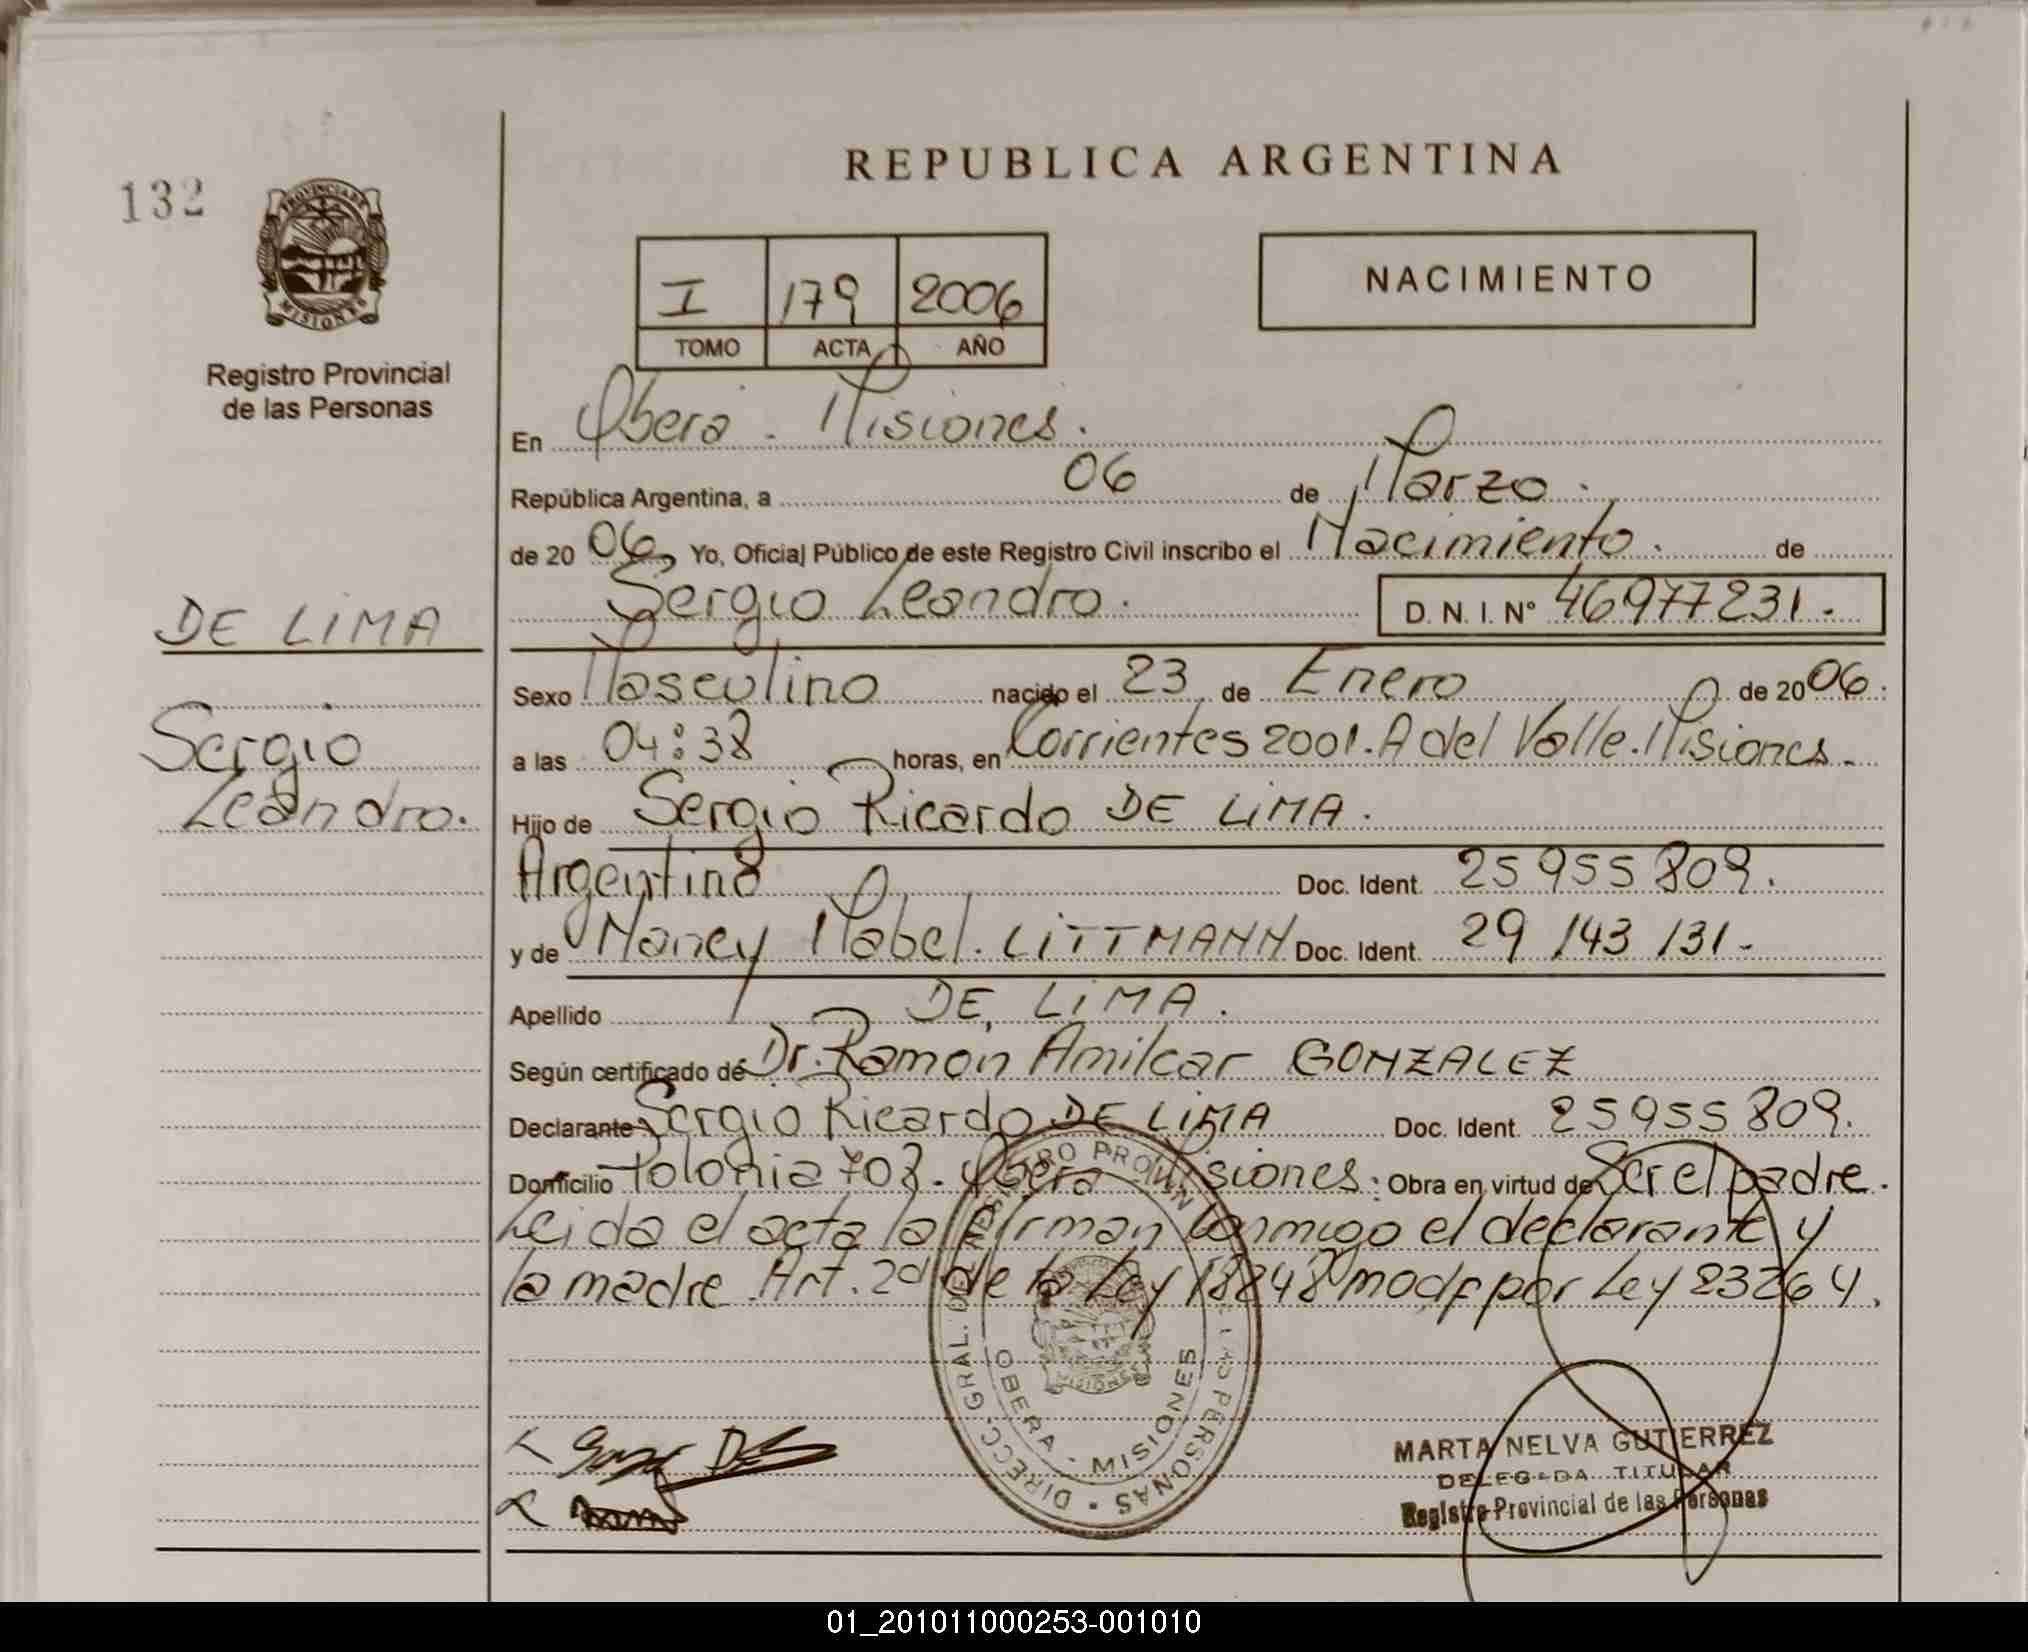 132
PROVINCIA DE
MISIONES
Registro Provincial
de las Personas
DE LIMA
Sergio
Leandro.
REPUBLICA ARGENTINA
I 179 2006
TOMO ACTA AÑO
NACIMIENTO
En Oberá - Misiones.
República Argentina, a 06 de Marzo.
de 20 06, Yo, Oficial Público de este Registro Civil inscribo el Nacimiento. de
Sergio Leandro. D. N. I. Nº 46977231.-
Sexo Masculino nacido el 23 de Enero de 20 06.
a las 04:38 horas, en Corrientes 2001. A del Valle. Misiones.
Hijo de Sergio Ricardo DE LIMA.
Argentino Doc. Ident. 25955809.
y de Nancy Mabel. LITTMANN Doc. Ident. 29 143 131-
Apellido DE LIMA.
Según certificado de Dr. Ramon Amilcar GONZALEZ
Declarante Sergio Ricardo DE LIMA Doc. Ident. 25955809.
Domicilio Polonia 708. Oberá Misiones. Obra en virtud de Ser el padre.
Leida el acta la firman conmigo el declarante y
la madre. Art. 2º de la Ley 18248 modf por Ley 23264.
DIRECC. GRAL. DEL REGISTRO PROVIN DE LAS PERSONAS
OBERA - MISIONES
MISIONES
MARTA NELVA GUTIERREZ
DELEGADA TITULAR
Registro Provincial de las Personas
01_201011000253-001010